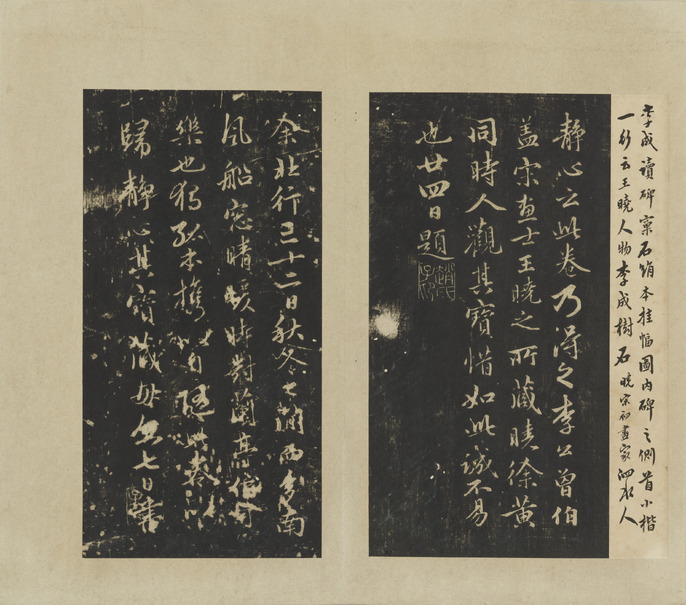 李成讀碑窠石絹本挂幅圖內碑之側首小楷
一行云王曉人物李成樹石曉宋初畫家泗水人
靜心云此卷乃得之李公曾伯
蓋宋畫士王曉之所藏曉徐黃
同時人觀其寶惜如此誠不易
也廿四日題
余北行三十二日秋冬之間而多南
風船窓晴暖時對蘭亭信可
樂也獨孤本攜以自隨此卷以
歸靜心其寶藏毋忽七日書